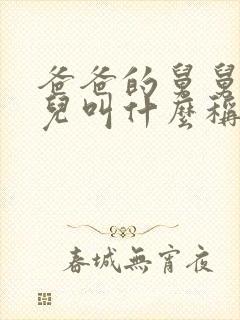 爸爸的舅舅
兒叫什麼稱
春城無宵夜